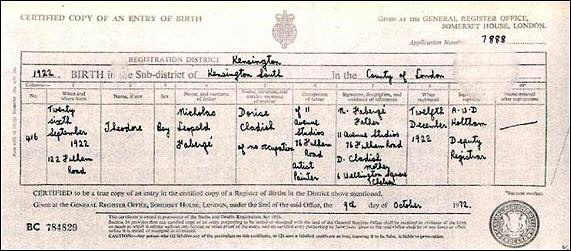 CERTIFIED COPY OF AN ENTRY OF BIRTH
GIVEN AT THE GENERAL REGISTER OFFICE,
SOMERSET HOUSE, LONDON.
Application Number 7888
REGISTRATION DISTRICT Kensington
1922. BIRTH in the Sub-district of Kensington South in the County of London
No. When and where born Name, if any Sex Name, and surname of father Name, surname, and maiden surname of mother Occupation of father Signature, description, and residence of informant When registered Signature of registrar Name entered after registration
416
Twenty
sixth
September
1922
122 Fulham
Road
Theodore
Boy
Nicholas
Leopold
Fabergé
Dorise
Cladish
of no occupation
of 11
Avenue
Studios
76 Fulham
Road
Artist
Painter
N. Faberge
Father
11 Avenue Studios
76 Fulham Road
D. Cladish
mother
6 Wellington Square
Chelsea
Twelfth
December
1922
A.W.D
Holtham
Deputy
Registrar
CERTIFIED to be a true copy of an entry in the certified copy of a Register of Births in the District above mentioned.
Given at the GENERAL REGISTER OFFICE, SOMERSET HOUSE, LONDON, under the Seal of the said Office, the 9th day of October 1972.
BC 784829
This certificate is issued in pursuance of the Births and Deaths Registration Act 1953.